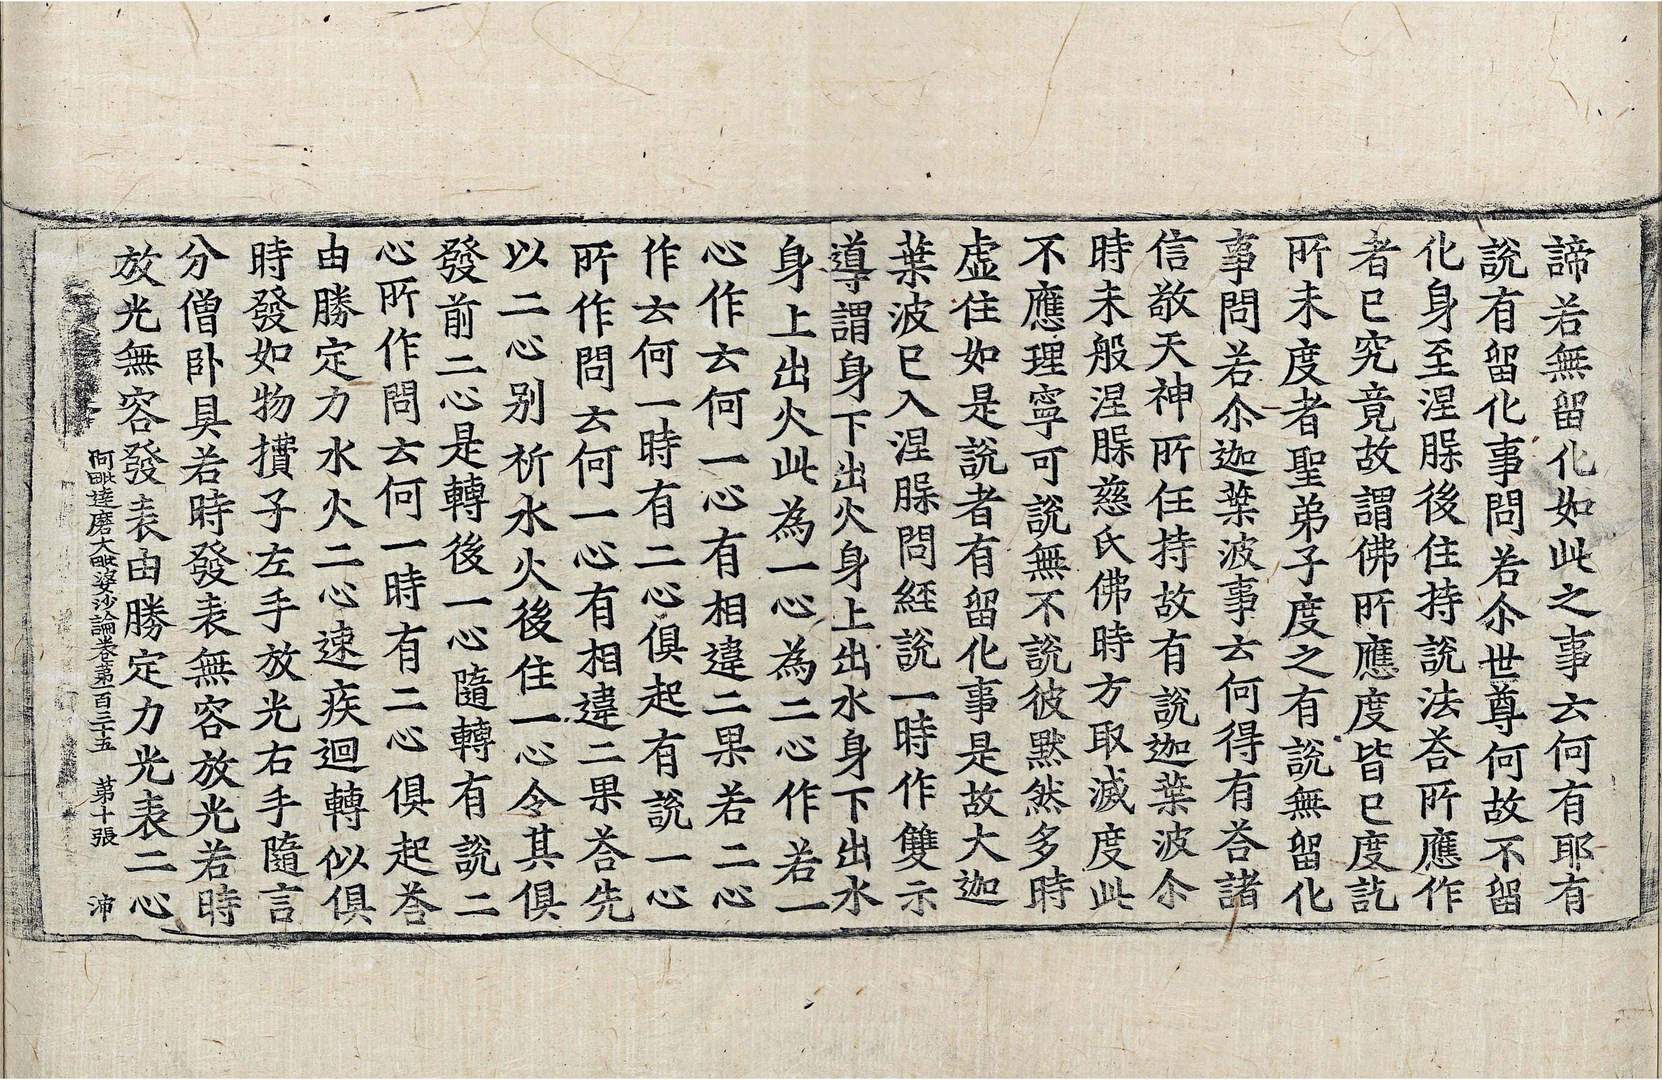 諦若無留化如此之事云何有耶有
說有留化事問若尒世尊何故不留
化身至涅槃後住持說法荅所應作
者已究竟故謂佛所應度皆已度訖
所未度者聖弟子度之有說無留化
事問若尒迦葉波事云何得有荅諸
信敬天神所任持故有說迦葉波尒
時未般涅槃慈氏佛時方取滅度此
不應理寧可說無不說彼默然多時
虛住如是說者有留化事是故大迦
葉波已入涅槃問經說一時作雙示
導謂身下出火身上出水身下出水
身上出火此為一心為二心作若一
心作云何一心有相違二果若二心
作云何一時有二心俱起有說一心
所作問云何一心有相違二果荅先
以二心別祈水火後住一心令其俱
發前二心是轉後一心隨轉有說二
心所作問云何一時有二心俱起荅
由勝定力水火二心速疾迴轉似俱
時發如物子左手放光右手隨言
分僧卧具若時發表無容放光若時
放光無容發表由勝定力光表二心
阿毗達磨大毗婆沙論卷第一百三十五 第十張 沛